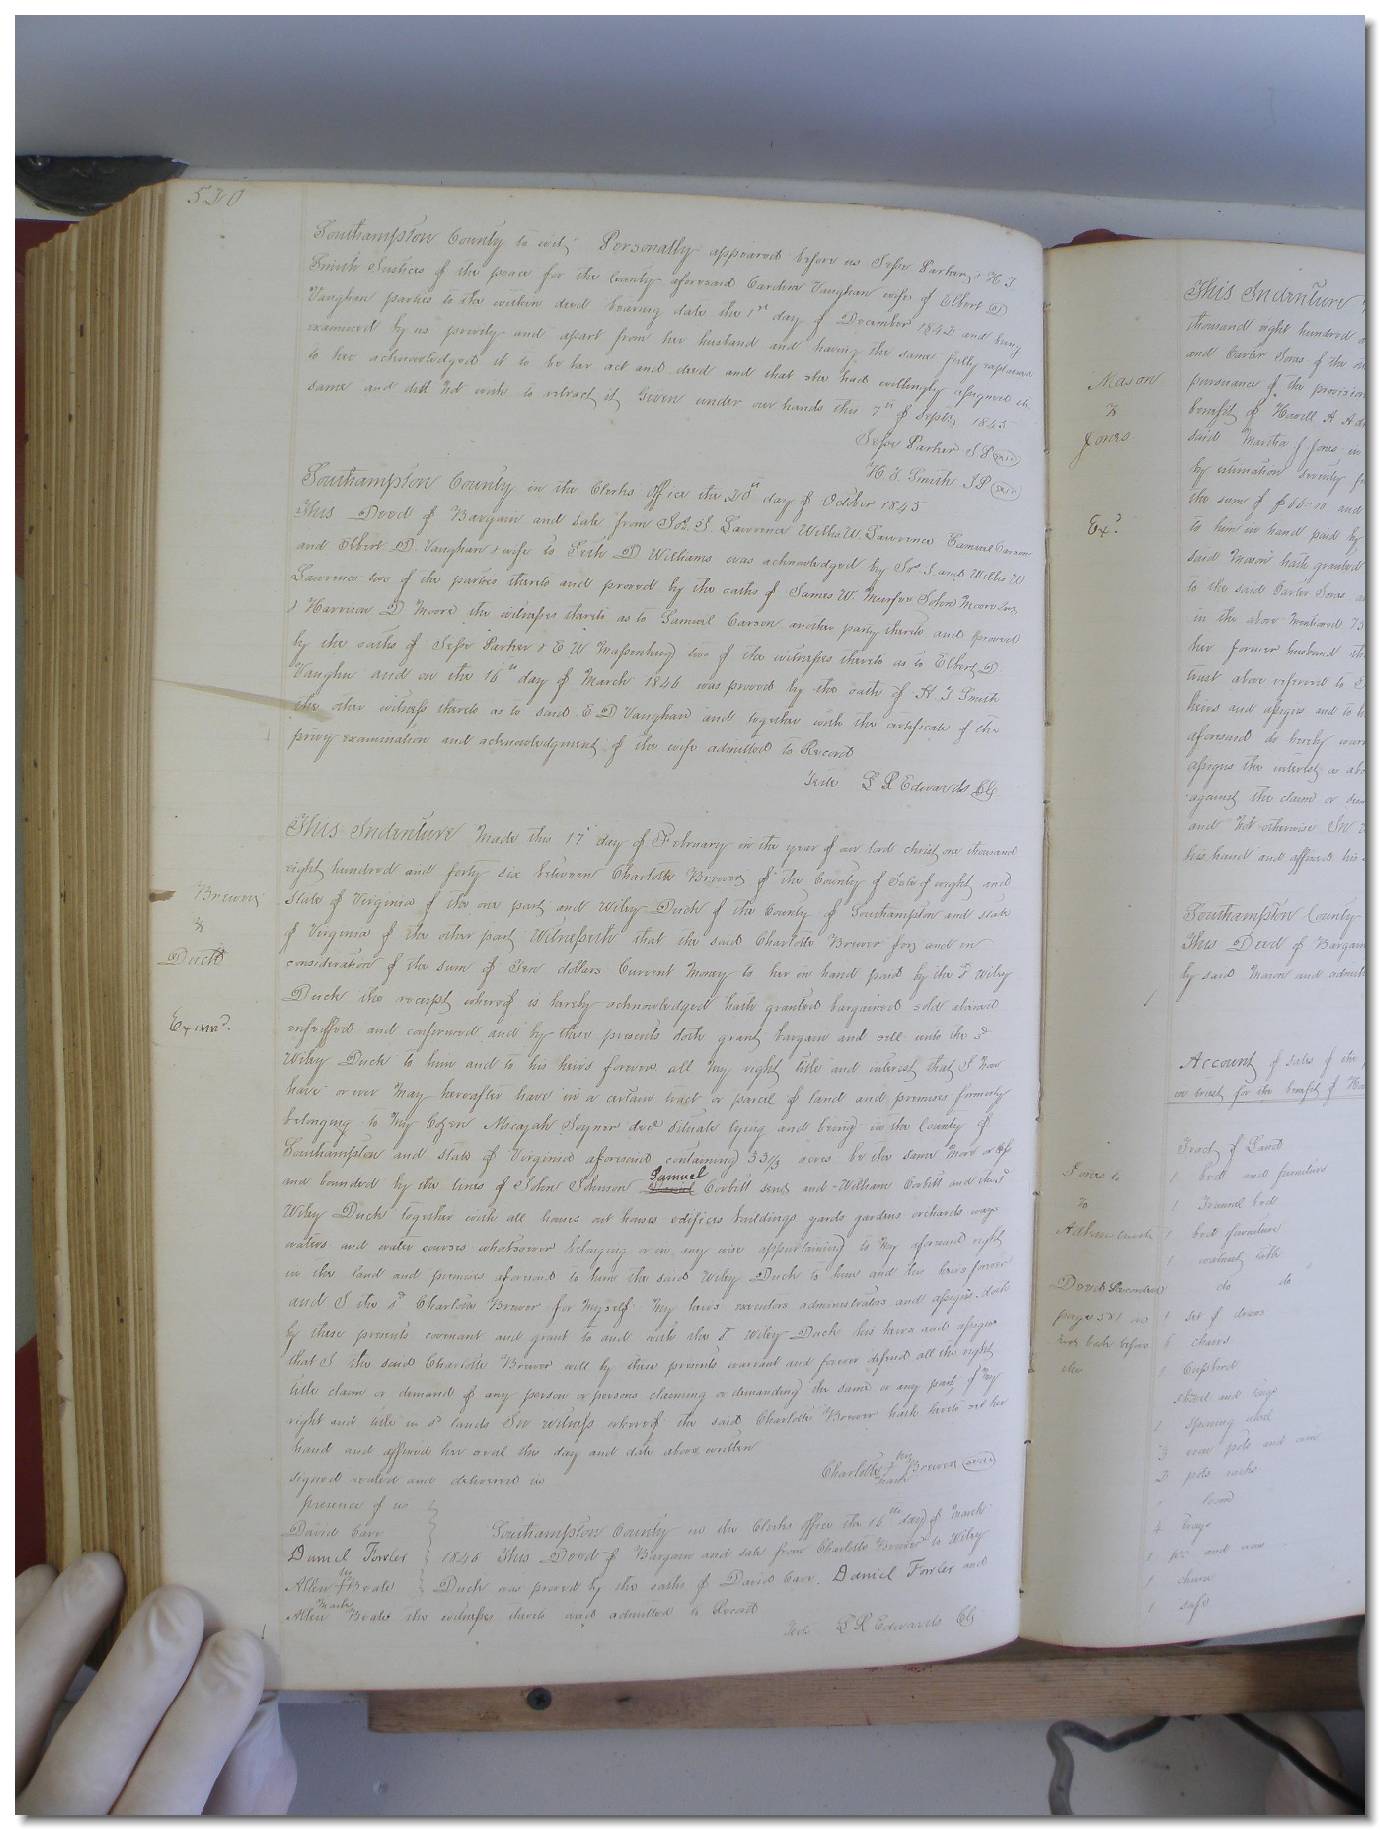 520
Southampton County to wit, Personally appeared before us Jesse Parker & H J
Smith Justices of the peace for the County aforesaid Cardine Vaughan wife of Elbert D
Vaughan parties to the within deed bearing date the 1st day of December 1842 and being
examined by us privily and apart from her husband and having the same fully explained
to her acknowledged it to be her act and deed and that she had willingly assigned the
same and doth not wish to retract it, Given under our hands this 7th of Septr 1843
Jesse Parker J P (seal)
H. J. Smith J P (seal)
Southampton County in the Clerks office the 20th day of October 1845
This Deed of Bargain and Sale from Jos. J. Lawrence Willis W. Lawrence Samuel Carson
and Elbert D. Vaughan & wife to Seth D Williams was acknowledged by Jos. J. and Willis W
Lawrence two of the parties thereto and proved by the oaths of James W. Murfee John Moore
& Harrison D Moore the witnesses thereto as to Samuel Carson another party thereto and proved
by the oaths of Jesse Parker & E W Massenburg two of the witnesses thereto as to Elbert D.
Vaughn and on the 16th day of March 1846 was proved by the oath of H J Smith
the other witness thereto as to said E D Vaughan and together with the certificate of the
privy examination and acknowledgment of the wife admitted to Record
Teste L R Edwards Clk
Brewer
to
Duck
Exmd.
This Indenture Made this 17th day of February in the year of our lord christ one thousand
eight hundred and forty six between Charlotte Brewer of the County of Isle of wight and
State of Virginia of the one part and Wiley Duck of the County of Southampton and State
of Virginia of the other part Witnesseth that the said Charlotte Brewer for and in
consideration of the sum of Ten dollars Current Money to her in hand paid by the sd Wiley
Duck the receipt whereof is hereby acknowledged hath granted bargained sold aliened
enfeoffed and confirmed and by these presents doth grant bargain and sell unto the sd
Wiley Duck to him and to his heirs forever all My right title and interest that I now
have or ever May hereafter have in a certain tract or parcel of land and premises formerly
belonging to My Cozen Micajah Joyner decd situate lying and being in the County of
Southampton and State of Virginia aforesaid containing 33 1/3 acres be the same More or less
and bounded by the lines of John Johnson Samuel Corbitt senr and William Corbitt and
Wiley Duck together with all houses out houses edifices buildings yards gardens orchards ways
waters and water courses whatsoever belonging or in any wise appertaining to My aforesaid right
in the land and premises aforesaid to him the said Wiley Duck to him and his heirs forever
and I the sd Charlotte Brewer for Myself My heirs executors administrators and assigns doth
by these presents covenant and grant to and with the sd Wiley Duck his heirs and assigns
that I the said Charlotte Brewer will by these presents warrant and forever defend all the right
title claim or demand of any person or persons claiming or demanding the same or any part of My
right and title in sd lands In witness whereof the said Charlotte Brewer hath hereto set her
hand and affixed her seal this day and date above written
signed sealed and delivered in
Charlotte her mark Brewer (seal)
presence of us
David Carr
Daniel Fowler
Allen his mark Beale
Southampton County in the Clerks office the 16th day of March
1846 This Deed of Bargain and sale from Charlotte Brewer to Wiley
Duck was proved by the oaths of David Carr, Daniel Fowler and
Allen Beale the witnesses thereto and admitted to Record
Teste L R Edwards Clk
Mason
to
Jones
Exd.
This Indenture
thousand eight hundred
and Carter Jones of the
pursuance of the
benefit of Howell A
said Martha J Jones in
by estimation seventy
the sum of and
to him in hand paid by
said Mason hath granted
to the said Carter Jones
in the above Mentioned 73
her former husband
trust above referred to
heirs and assigns and to
aforesaid do hereby
assigns the interest
against the claim or
and Not otherwise In
his hand and affixed his
Southampton County
This Deed of Bargain
by said Mason and
Account of sales of the
in trust for the benefit of
Tract of Land
Jones to
1 bed and furniture
to
1 Trunnel bed
1 bed furniture
1 walnut table
Deed Recorded
do do
page 521
1 set of
6 chairs
1 Cupboard
3 pots and
2 pots racks
1 loom
1 safe